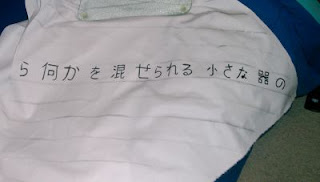 ら何かを混ぜられる小さな器の